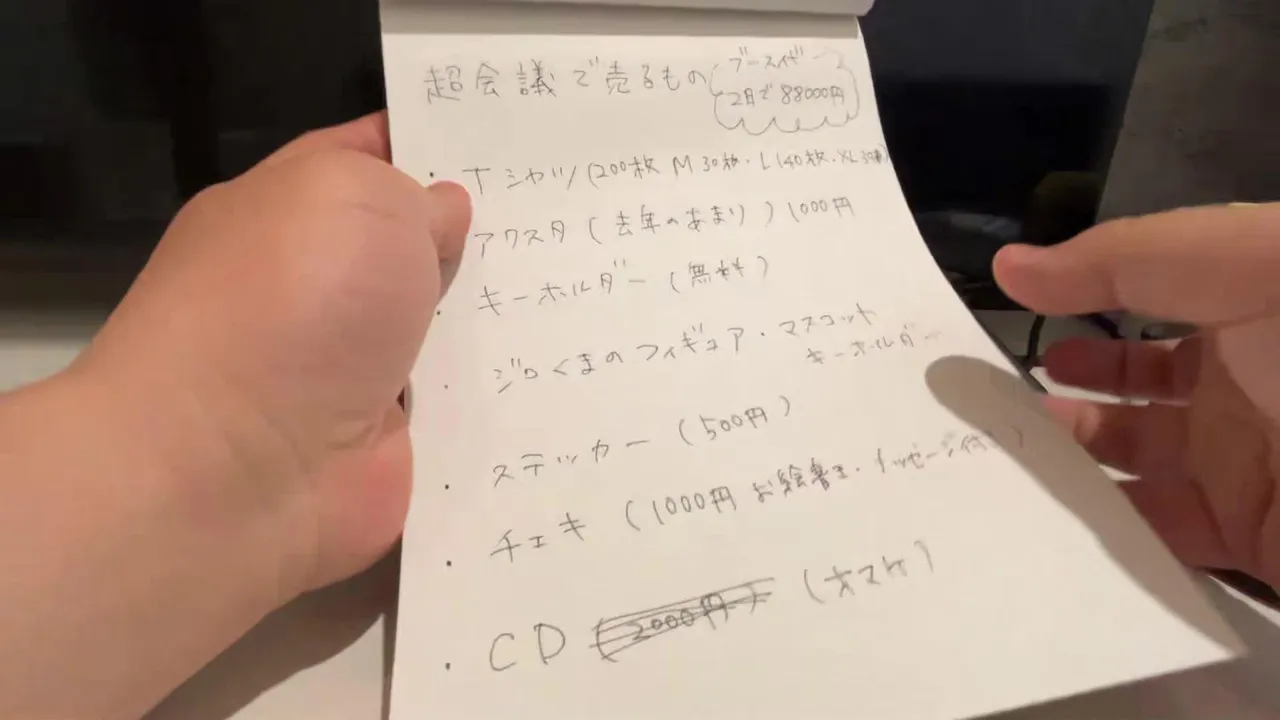 超会議で売るもの
ブース代
2日で88000円
・Tシャツ(200枚 M30枚・L140枚・XL30枚)
アクスタ(去年のあまり)1000円
・キーホルダー(無料)
・ジロくまのフィギュア・マスコット
キーホルダー
・ステッカー(500円)
・チェキ(1000円 お絵書き・メッセージ付き)
・CD (2000円)(オマケ)